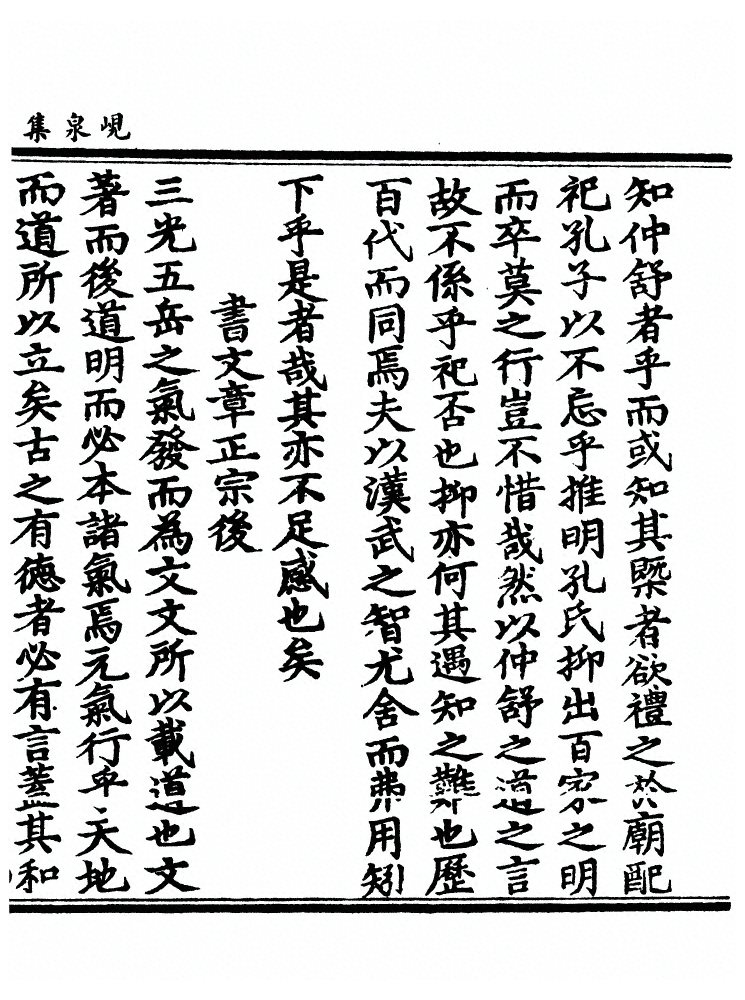 峴泉集
知仲舒者乎而或知其槩者欲禮之於廟配
祀孔子以不忘乎推明孔氏抑出百家之明
而卒莫之行豈不惜哉然以仲舒之道之言
故不係乎祀否也抑亦何其遇知之難也歷
百代而同焉夫以漢武之智尤舍而弗用矧
下乎是者哉其亦不足感也矣
書文章正宗後
三光五岳之氣發而為文文所以載道也文
著而後道明而必本諸氣焉元氣行乎天地
而道所以立矣古之有德者必有言蓋其和